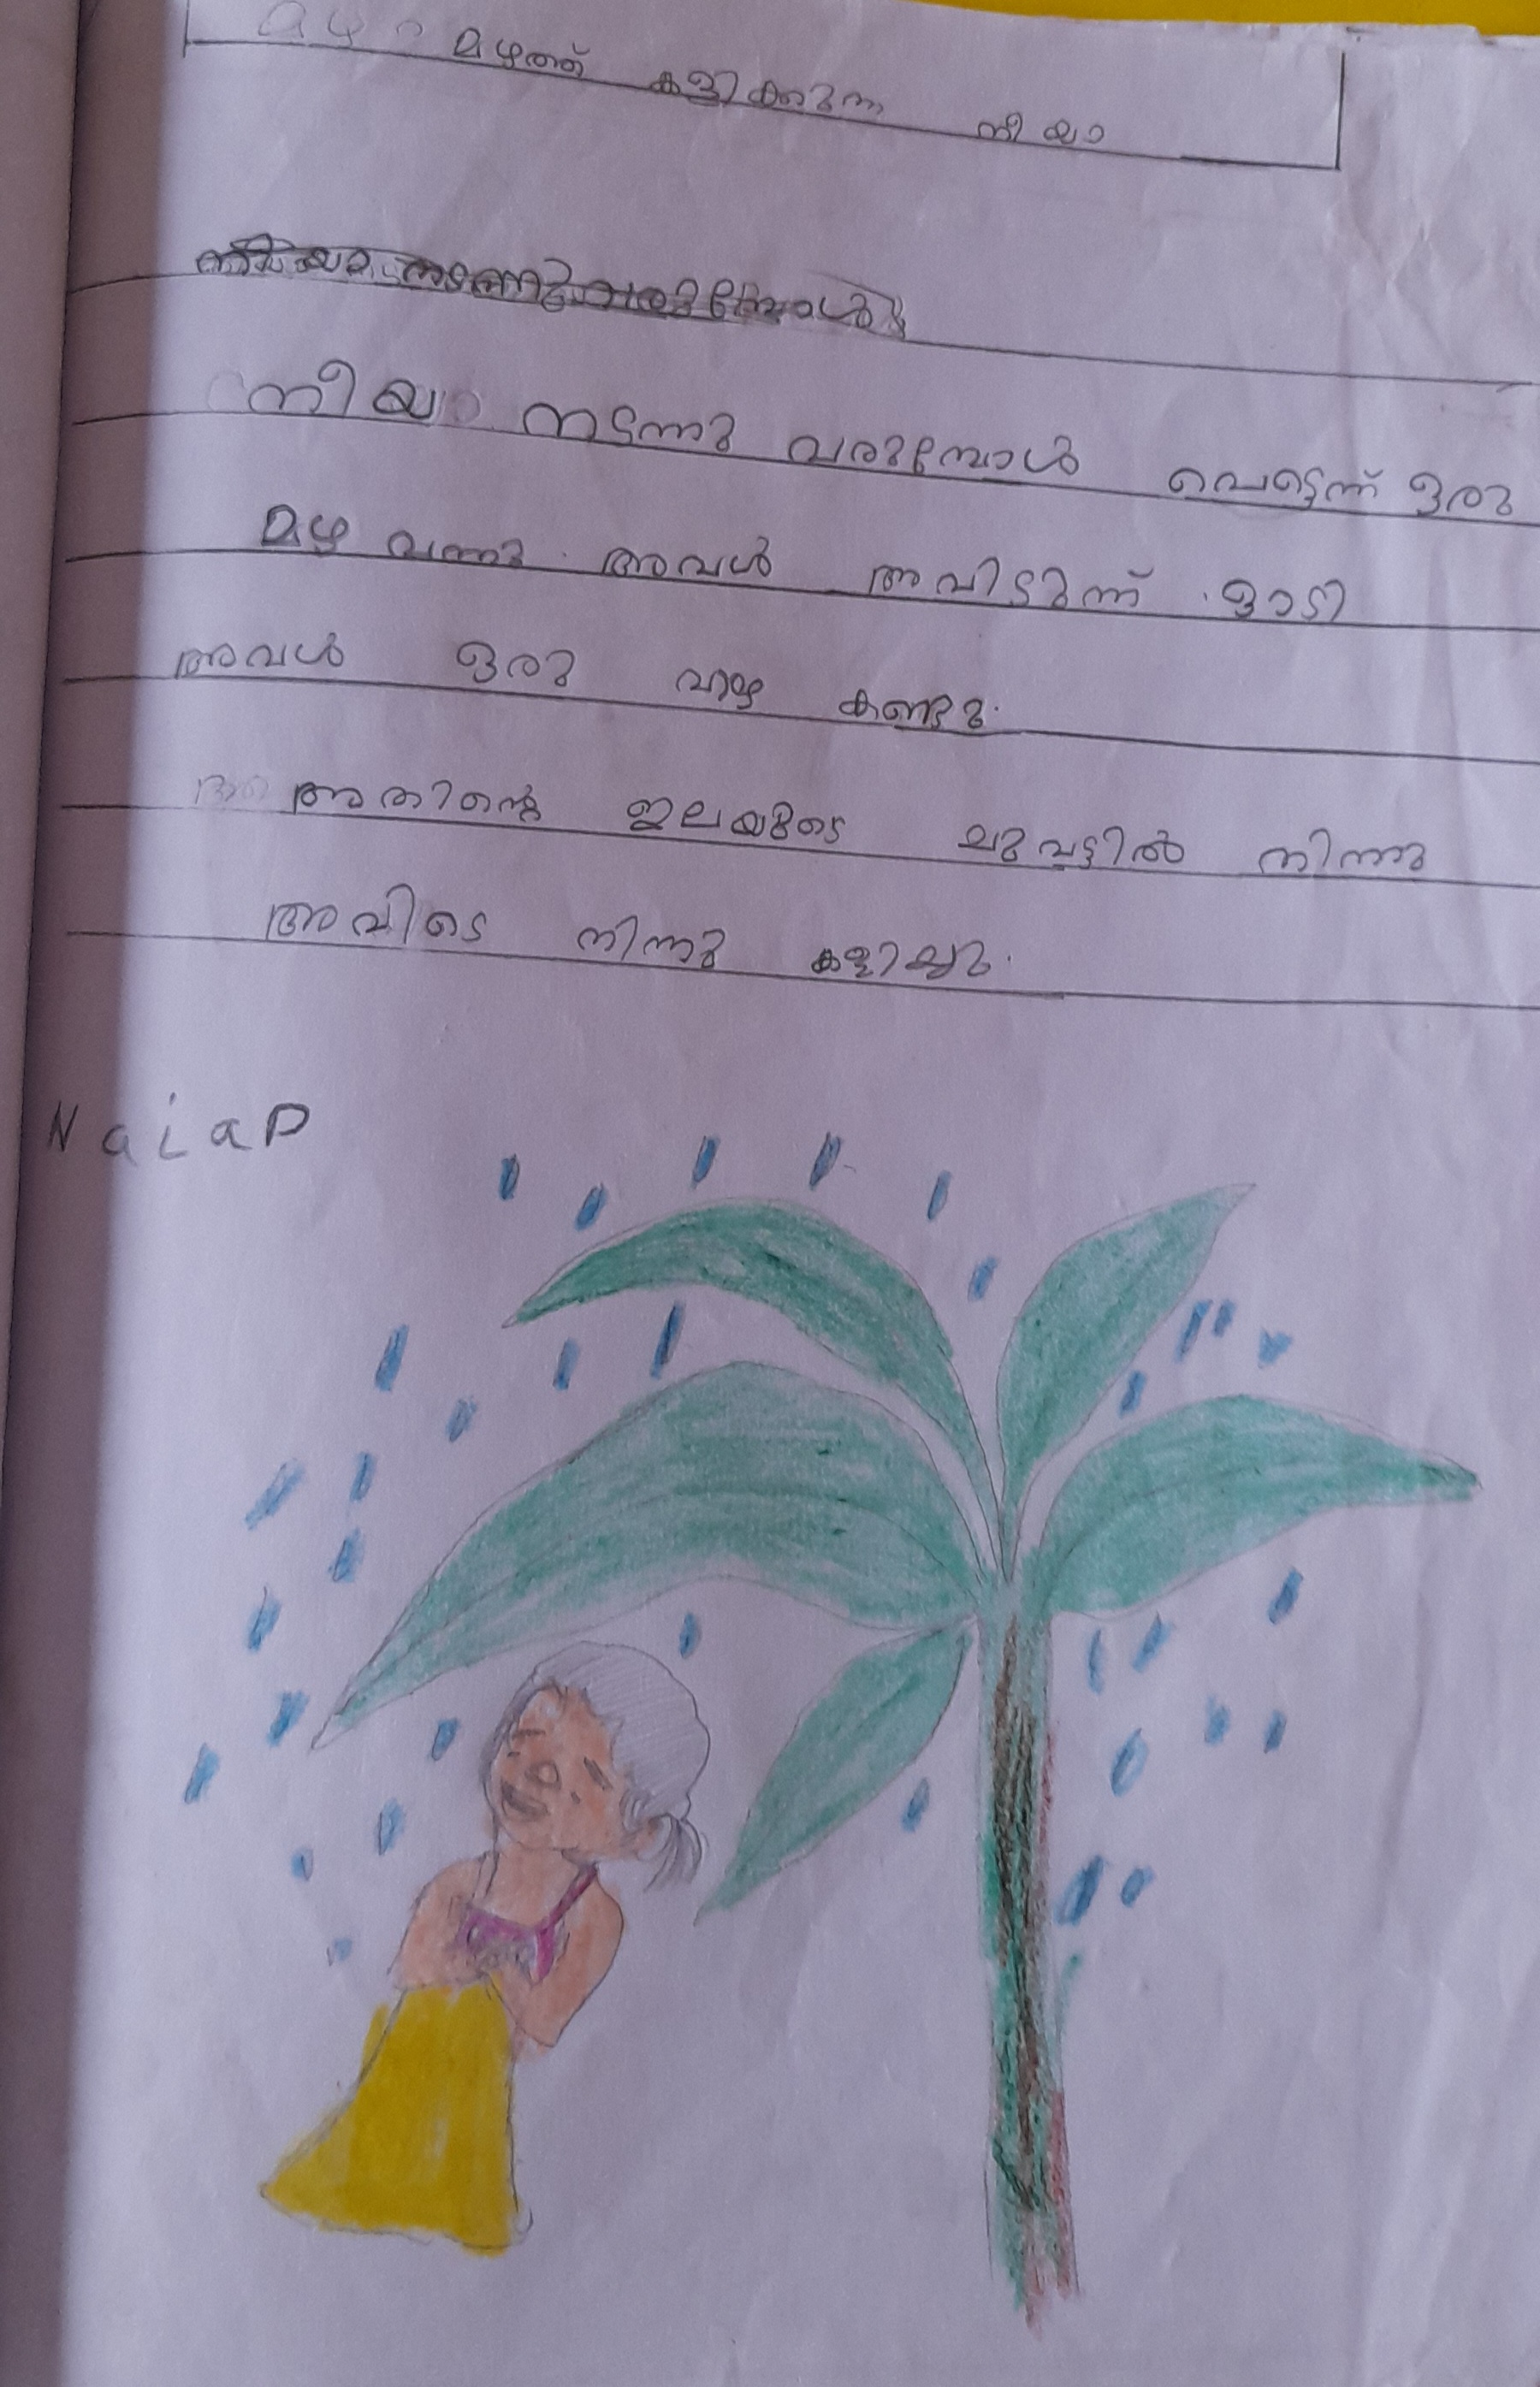 മഴത്ത് കളിക്കുന്ന നീയാ
നീയാ നടന്നു വരുമ്പോൾ പെട്ടെന്ന് ഒരു
മഴ വന്നു. അവൾ അവിടുന്ന് ഓടി
അവൾ ഒരു വാഴ കണ്ടു.
അതിന്റെ ഇലയുടെ ചുവട്ടിൽ നിന്നു
അവിടെ നിന്നു കളിച്ചു.
Naiap